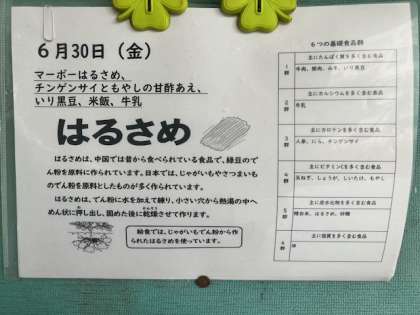 6月30日（金）
マーボーはるさめ、
チンゲンサイともやしの甘酢あえ、
いり黒豆、米飯、牛乳
はるさめ
はるさめは、中国では昔から食べられている食品で、緑豆ので
ん粉を原料に作られています。日本では、じゃがいもやさつまいも
のでん粉を原料としたものが多く作られています。
はるさめは、でん粉に水を加えて練り、小さい穴から熱湯の中へ
めん状に押し出し、固めた後に乾燥させて作ります。
給食では、じゃがいもでん粉から作
られたはるさめを使っています。
6つの基礎食品群
1群
主にたんぱく質を多く含む食品
牛肉、豚肉、みそ、いり黒豆
2群
主にカルシウムを多く含む食品
牛乳
3群
主にカロテンを多く含む食品
人参、にら、チンゲンサイ
4群
主にビタミンCを多く含む食品
玉ねぎ、しょうが、しいたけ、もやし
5群
主に炭水化物を多く含む食品
精白米、はるさめ、砂糖
6群
主に脂質を多く含む食品